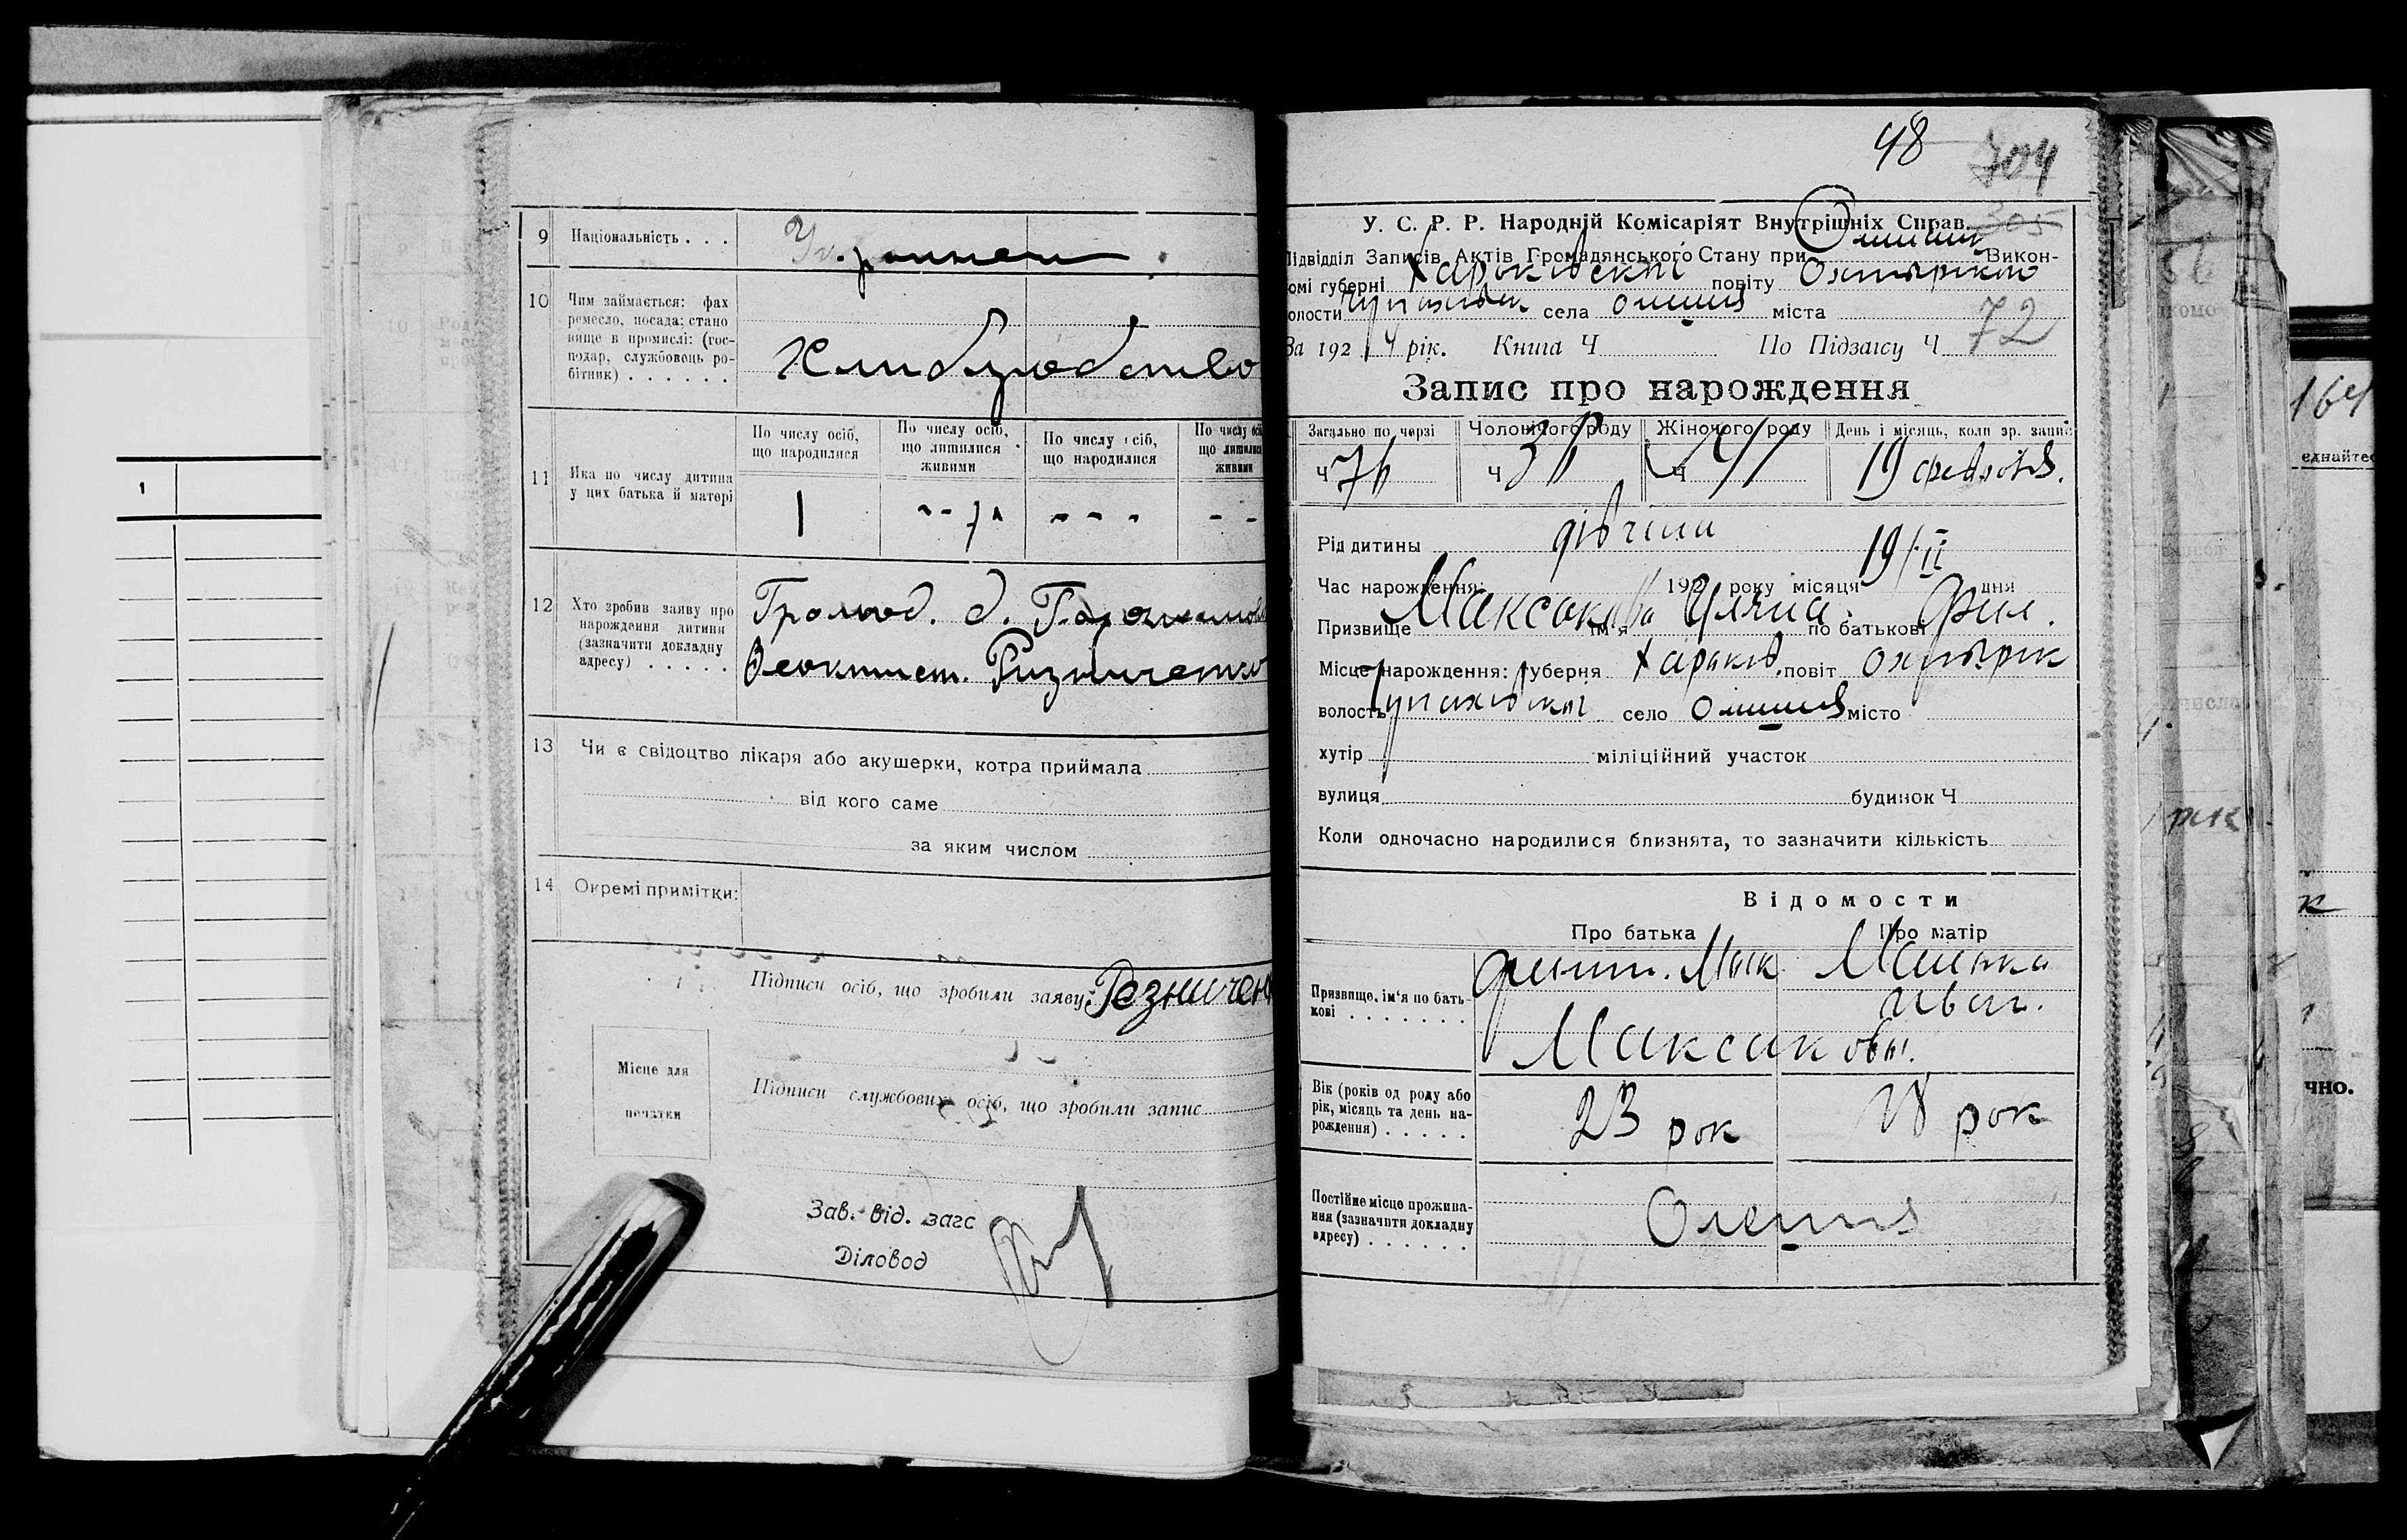 9 Національність . . .
10 Чим займається: фах
ремесло, посада; стано
вище в промислі: (гос-
подар, службовець ро-
бітник) . . . . . .
11 Яка по числу дитина
у цих батька й матері
По числу осіб,
що народилися
По числу осіб,
що лишилися
живими
По числу осіб,
що народилися
По числу осіб
що лишилися
живими
1
12 Хто зробив заяву про
нарождення дитини
(зазначити докладну
адресу) . . . . .
Громад. с.
Феоктист. Ризниченко
13 Чи є свідоцтво лікаря або акушерки, котра приймала
від кого саме
за яким числом
14 Окремі примітки:
Підписи осіб, що зробили заяву: Резничен
Місце для
печатки
Підписи службових осіб, що зробили запис
Зав. від. загс
Діловод
48
704
305
У. С. Р. Р. Народній Комісаріят Внутрішніх Справ.
Підвідділ Записів Актів Громадянського Стану при Викон-
омі губерні Харьківській повіту
олости села Олешня міста
За 192 4 рік. Книга Ч По Підзагсу Ч 72
Запис про нарождення
Загально по черзі Чоловічого роду Жіночого роду День і місяць, коли зр. запис
Ч 76 Ч Ч 41 19
Рід дитини дівчина
Час нарождення: 192 року місяця 19/II дня
Призвище Максакова ім'я по батькові Фил.
Місце нарождення: губерня Харьків. повіт Охтирк
волость Чупахівськ село Олешня місто
хутір міліційний участок
вулиця будинок Ч
Коли одночасно народилися близнята, то зазначити кількість
Відомости
Про батька Про матір
Призвище, ім'я по бать-
кові . . . . . . .
Филип. Мак.
Иван.
Максаковы.
Вік (років од роду або
рік, місяць та день на-
рождення) . . . . .
23 рок рок
Постійне місце прожива-
ння (зазначити докладну
адресу) . . . . . .
Олешня
1
164
еднайтес
чно.